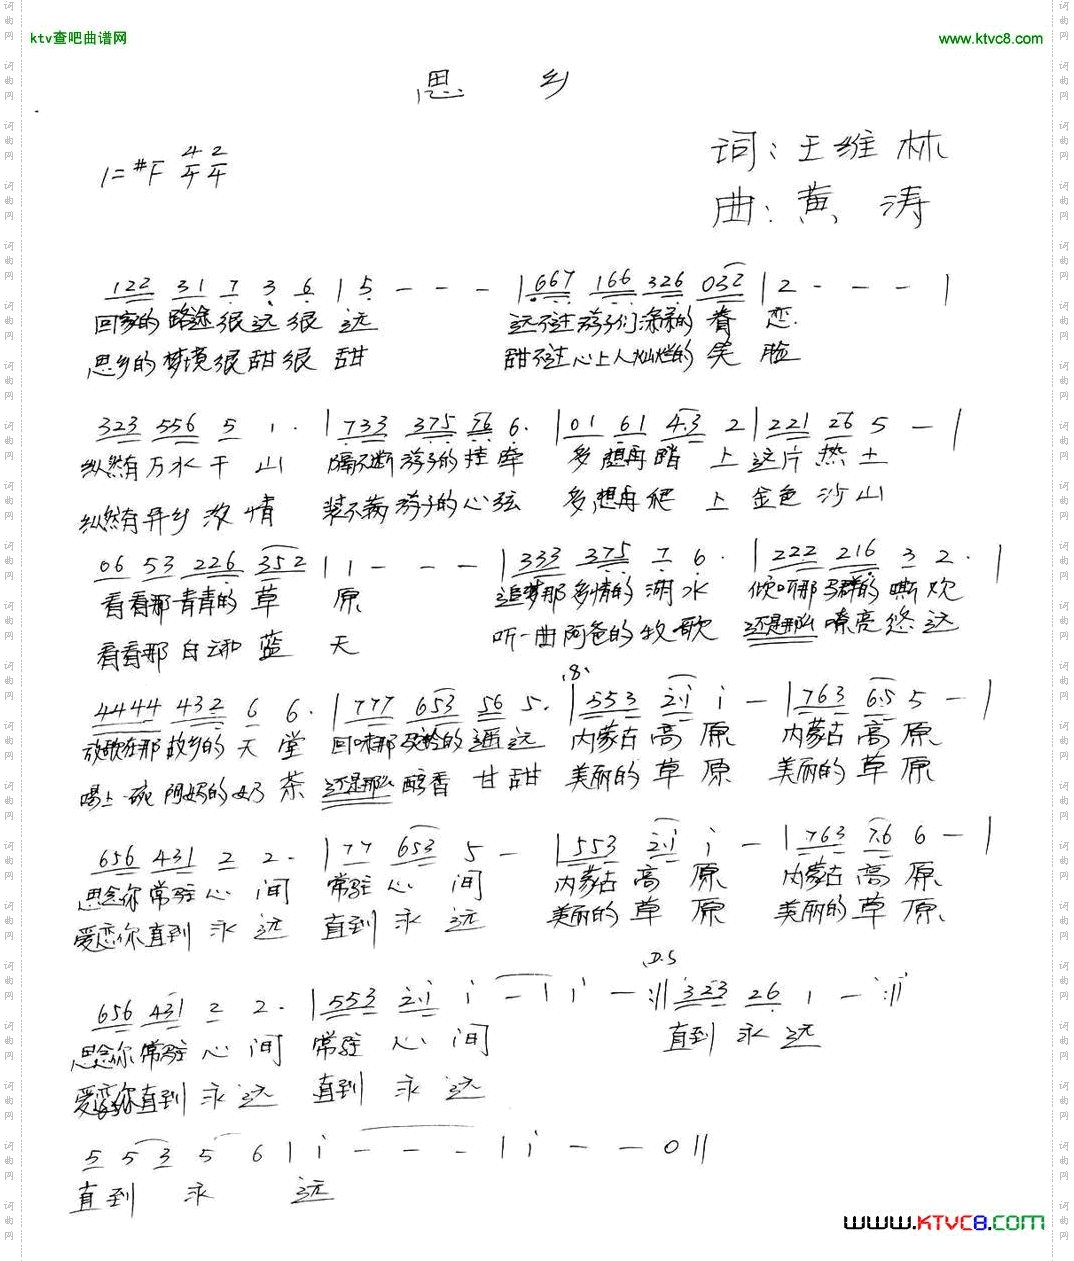 ktv查吧曲谱网 www.ktvc8.com
思 乡
1=#F 4/4 2/4
词：王维林
曲：黄 涛
122 31 7 3 6 | 5 - - - | 667 166 326 032 | 2 - - - |
回家的 路途很远很 远 远不过游子们深深的眷 恋
思乡的梦境很甜很 甜 甜不过心上人灿烂的笑 脸
323 556 5 1 · | 733 375 76 6 · | 01 61 43 2 | 221 26 5 - |
纵然有万水千山 隔不断游子的挂牵 多想再踏 上 这片热土
纵然有异乡浓情 装不满游子的心弦 多想再爬 上 金色沙山
06 53 226 352 | 1 - - - | 333 375 7 6 · | 222 216 3 2 · |
看看那青青的草 原 追梦那多情的湖水 倾听那马群的嘶欢
看看那白云和蓝 天 听一曲阿爸的牧歌 还是那么嘹亮悠远
4444 432 6 6 · | 777 653 56 5 · | .8. 553 2i i - | 763 65 5 - |
放歌在那故乡的天堂 回味那的遥远 内蒙古高 原 内蒙古高 原
喝上一碗阿妈的奶茶 还是那么醇香甘甜 美丽的草 原 美丽的草 原
656 431 2 2 · | 77 653 5 - | 553 2i i - | 763 76 6 - |
思念你常驻心 间 常驻心 间 内蒙古高 原 内蒙古高 原
爱恋你直到永 远 直到永 远 美丽的草 原 美丽的草 原
656 431 2 2 · | 553 2i i - | i - :|| D.S 323 26 1 - :||
思念你常驻心 间 常驻 心 间 直到 永 远
爱恋你直到永 远 直到 永 远
5 5 3 5 6 | i - - - | i - - 0 ||
直到 永 远
www.KTVC8.com